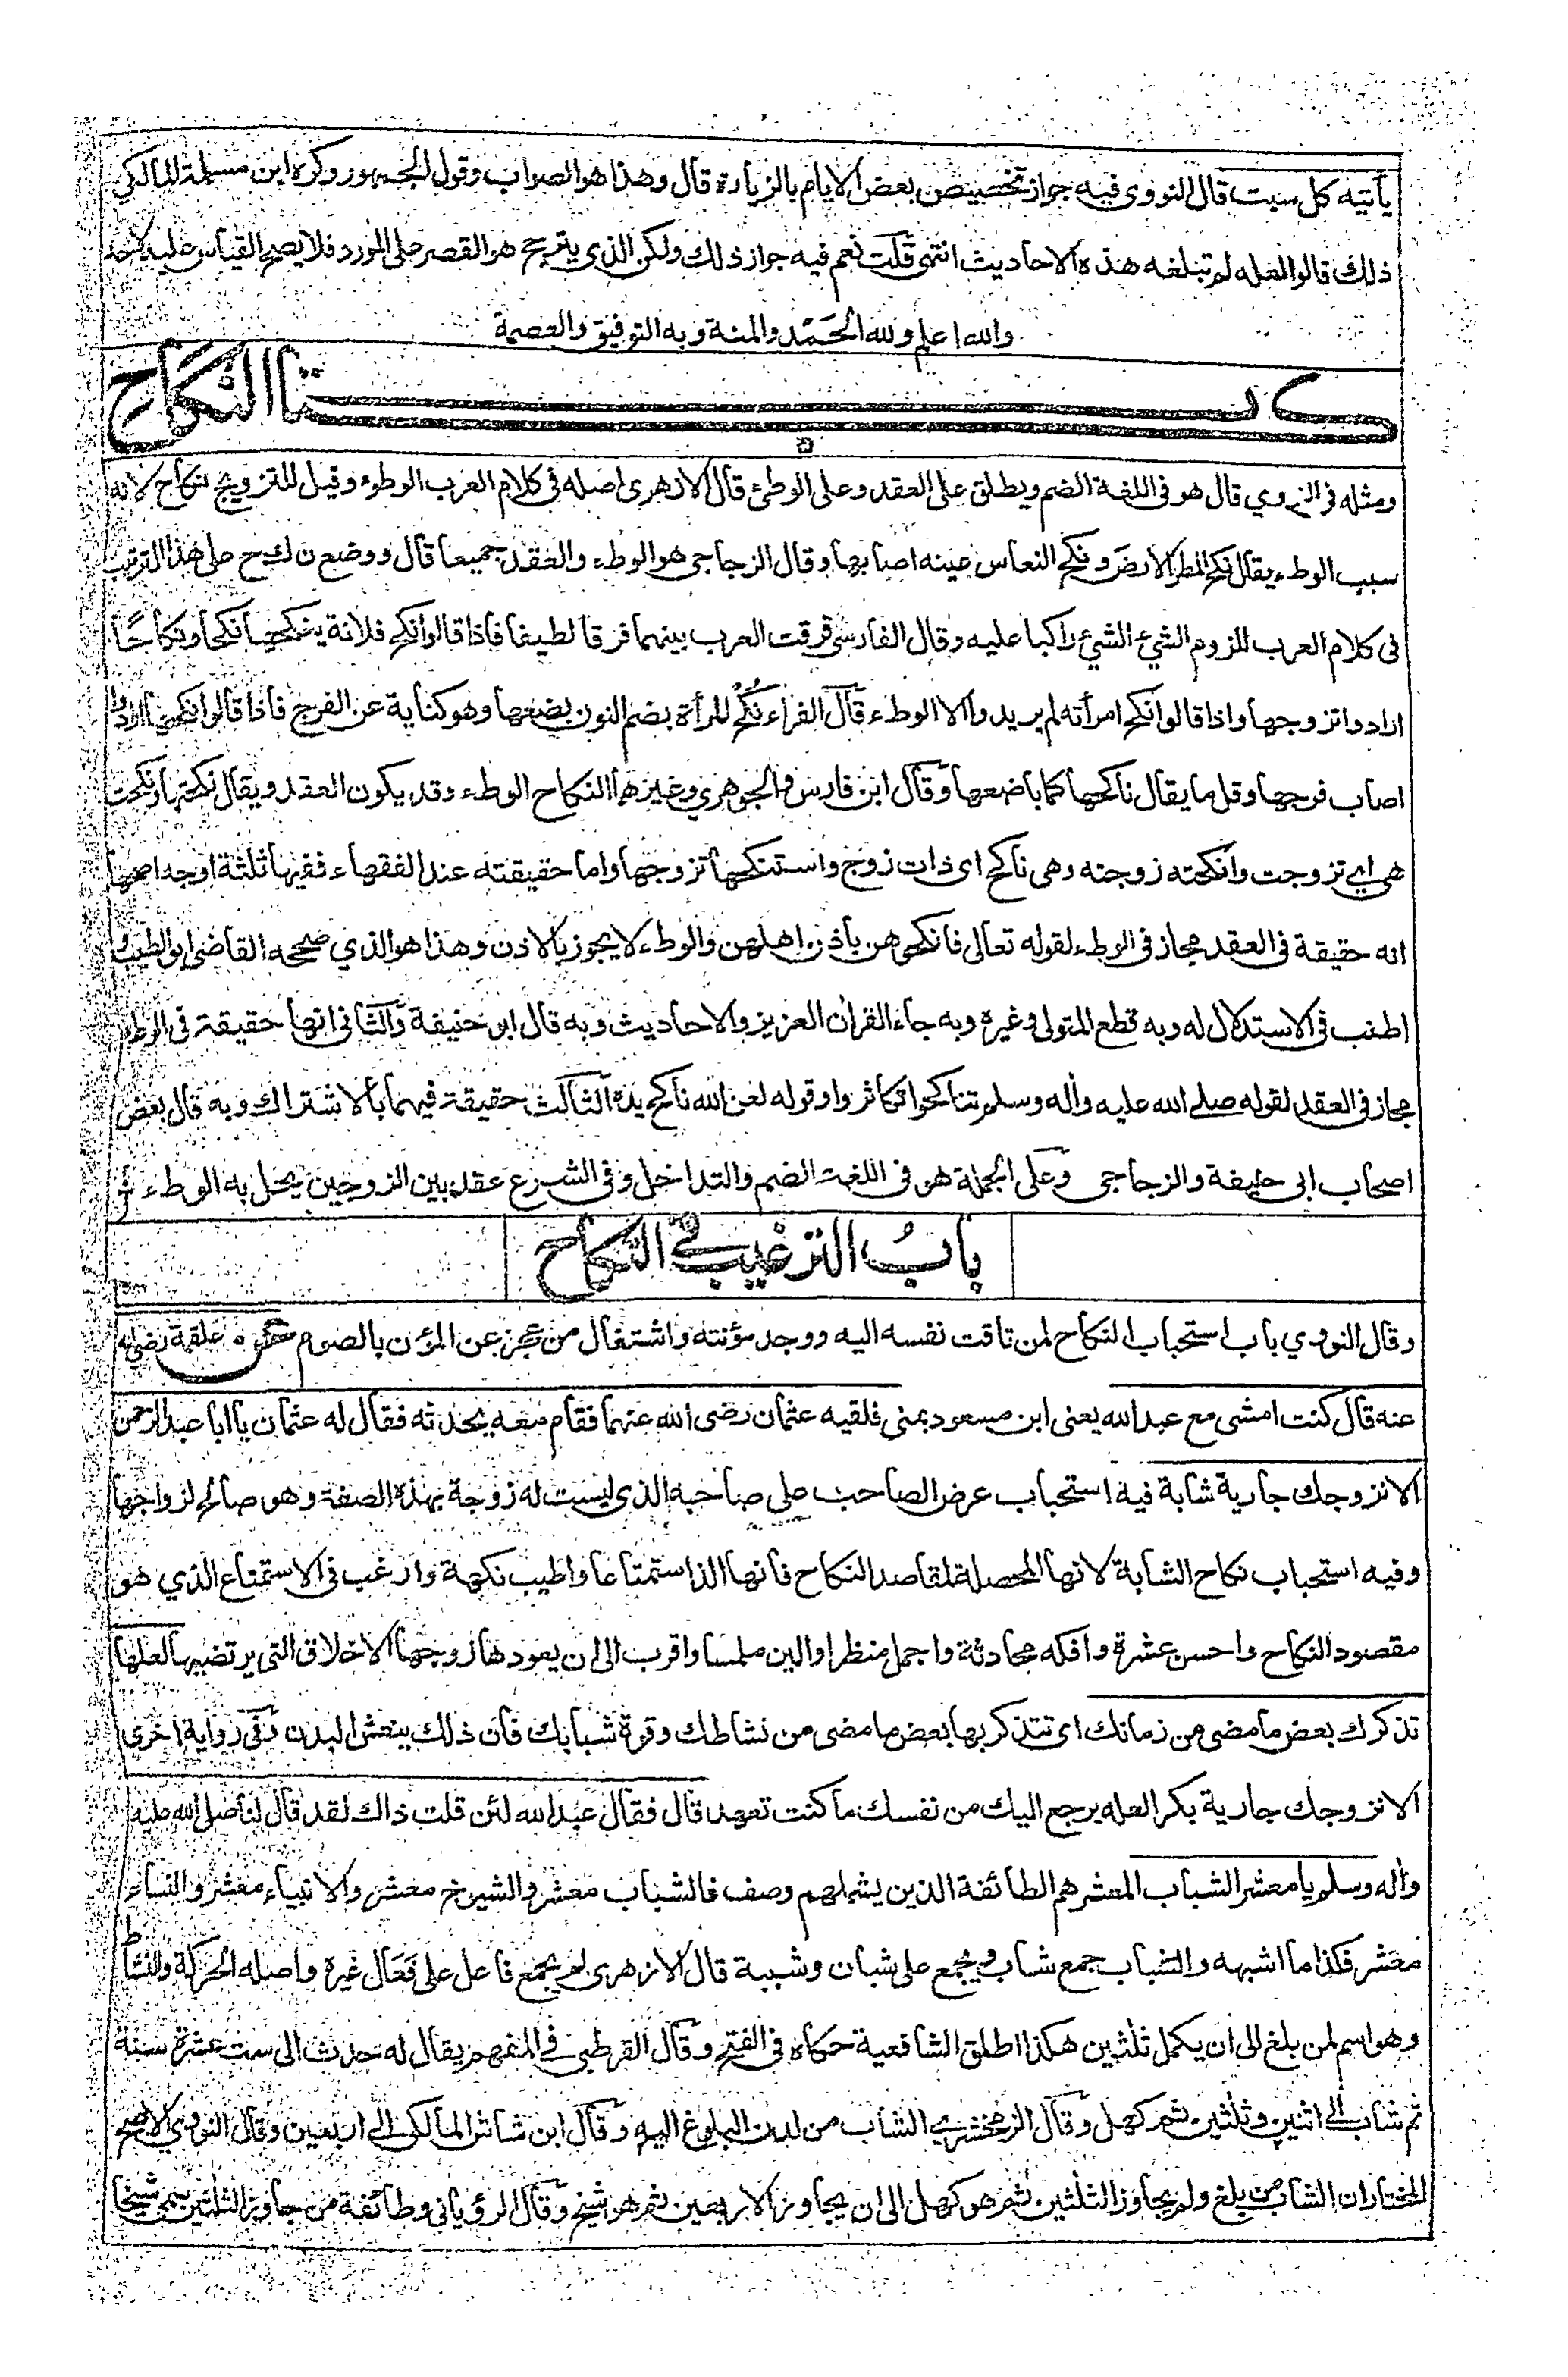 يأتيه كل سبت قال النووي فيه جواز تخصيص بعض الايام بالزيارة قال وهذا هو الصواب وقول الجمهور وكره ابن مسلمة المالكي
ذلك قالوا لعله لم تبلغه هذه الاحاديث انتهى قلت نعم فيه جواز ذلك ولكن الذي يترجح هو القصر على المورد فلا يصح القياس عليه
والله اعلم ولله الحمد والمنة وبه التوفيق والعصمة
كتاب النكاح
ومثله في النووي قال هو في اللغة الضم ويطلق على العقد وعلى الوطئ قال الازهرى اصله فى كلام العرب الوطوء وقيل للتزويج نكاح لانه
سبب الوطء يقال نكح المطر الارض ونكح النعاس عينه اصابها وقال الزجاجى هو الوطء والعقد جميعا قال ووضع ن ك ح على هذا الترتيب
فى كلام العرب للزوم الشيئ الشيئ راكبا عليه وقال الفارسى فرقت العرب بينهما فرقا لطيفا فاذا قالوا نكح فلانة ينكحها نكحا ونكاحًا
ارادوا تزوجها واذا قالوا نكح امرأته لم يريدوا الا الوطء قال الفراء نُكْحُ المرأة بضم النون بضعها وهو كناية عن الفرج فاذا قالوا نكحها ارادوا
اصاب فرجها وقل ما يقال ناكحها كما باضعها وقال ابن فارس والجوهري وغيرهما النكاح الوطء وقد يكون العقد ويقال نكحتها ونكحت
هى اي تزوجت وانكحته زوجته وهى ناكح اى ذات زوج واستنكحها تزوجها واما حقيقته عند الفقهاء ففيها ثلثة اوجه اصحها
انه حقيقة فى العقد مجاز فى الوطء لقوله تعالى فانكحوهن باذن اهلهن والوطء لا يجوز بالاذن وهذا هو الذي صححه القاضى ابو الطيب و
اطنب فى الاستدلال له وبه قطع المتولى وغيره وبه جاء القران العزيز والاحاديث وبه قال ابو حنيفة والثانى انها حقيقة فى الوطء
مجاز فى العقد لقوله صلى الله عليه وأله وسلم تناكحوا تكاثروا وقوله لعن الله ناكح يده الثالث حقيقة فيهما بالاشتراك وبه قال بعض
اصحاب ابى حنيفة والزجاجى وعلى الجملة هو فى اللغة الضم والتداخل وفى الشرع عقد بين الزوجين يحل به الوطء
بابُ الترغيب في النكاح
وقال النووي باب استحباب النكاح لمن تاقت نفسه اليه ووجد مؤنته واشتغال من عجز عن المؤن بالصوم عن علقمة رضى الله
عنه قال كنت امشى مع عبد الله يعنى ابن مسعود بمنى فلقيه عثمان رضى الله عنهما فقام معه يحدثه فقال له عثمان يا ابا عبد الرحمن
الا نزوجك جارية شابة فيه استحباب عرض الصاحب على صاحبه الذى ليست له زوجة بهذه الصفة وهو صالح لزواجها
وفيه استحباب نكاح الشابة لانها المحصلة لمقاصد النكاح فانها الذ استمتاعا واطيب نكهة وارغب فى الاستمتاع الذي هو
مقصود النكاح واحسن عشرة وافكه محادثة واجمل منظرا والين ملمسا واقرب الى ان يعودها زوجها الاخلاق التى يرتضيها لعلها
تذكرك بعض ما مضى من زمانك اى تتذكر بها بعض ما مضى من نشاطك وقوة شبابك فان ذلك ينعش البدن وفى رواية اخرى
الا نزوجك جارية بكرا لعله يرجع اليك من نفسك ما كنت تعهد قال فقال عبد الله لئن قلت ذاك لقد قال لنا صلى الله عليه
وأله وسلم يا معشر الشباب المعشر هم الطائفة الذين يشملهم وصف فالشباب معشر والشيوخ معشر والانبياء معشر والنساء
معشر فكذا ما اشبهه والشباب جمع شاب ويجمع على شبان وشببة قال الازهرى لم يجمع فاعل على فَعَال غيره واصله الحركة والنشاط
وهو اسم لمن بلغ الى ان يكمل ثلثين هكذا اطلق الشافعية حكاه فى الفتح وقال القرطبى في المفهم يقال له حدث الى ست عشرة سنة
ثم شاب الى اثنين وثلثين ثم كهل وقال الزمخشري الشاب من لدن البلوغ اليه وقال ابن شاش المالكى الى اربعين وقال النووي الاصح
المختار ان الشاب من بلغ ولم يجاوز الثلثين ثم هو كهل الى ان يجاوز الاربعين ثم هو شيخ وقال الرؤيانى وطائفة من جاوز الثلثين سمى شيخا